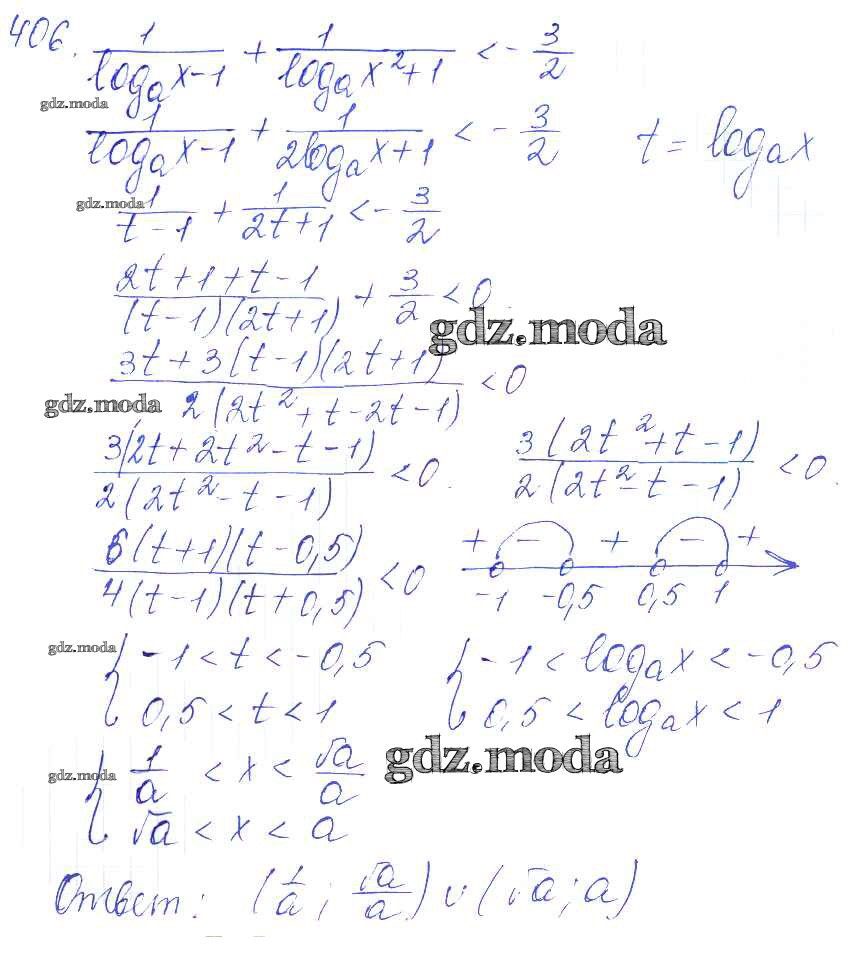 406. 1/(logₐx-1) + 1/(logₐx²+1) < -3/2
gdz.moda
1/(logₐx-1) + 1/(2logₐx+1) < -3/2    t = logₐx
gdz.moda
1/(t-1) + 1/(2t+1) < -3/2
(2t+1+t-1)/((t-1)(2t+1)) + 3/2 < 0
gdz.moda
(3t+3(t-1)(2t+1))/(2(2t²+t-2t-1)) < 0
gdz.moda
3(2t+2t²-t-1)/(2(2t²-t-1)) < 0.    3(2t²+t-1)/(2(2t²-t-1)) < 0.
6(t+1)(t-0,5)/(4(t-1)(t+0,5)) < 0    + - + - +
-1 -0,5 0,5 1
gdz.moda
{ -1 < t < -0,5    { -1 < logₐx < -0,5
0,5 < t < 1    0,5 < logₐx < 1
gdz.moda
gdz.moda
{ 1/a < x < √a/a
√a < x < a
Ответ: (1/a ; √a/a) ∪ (√a ; a)